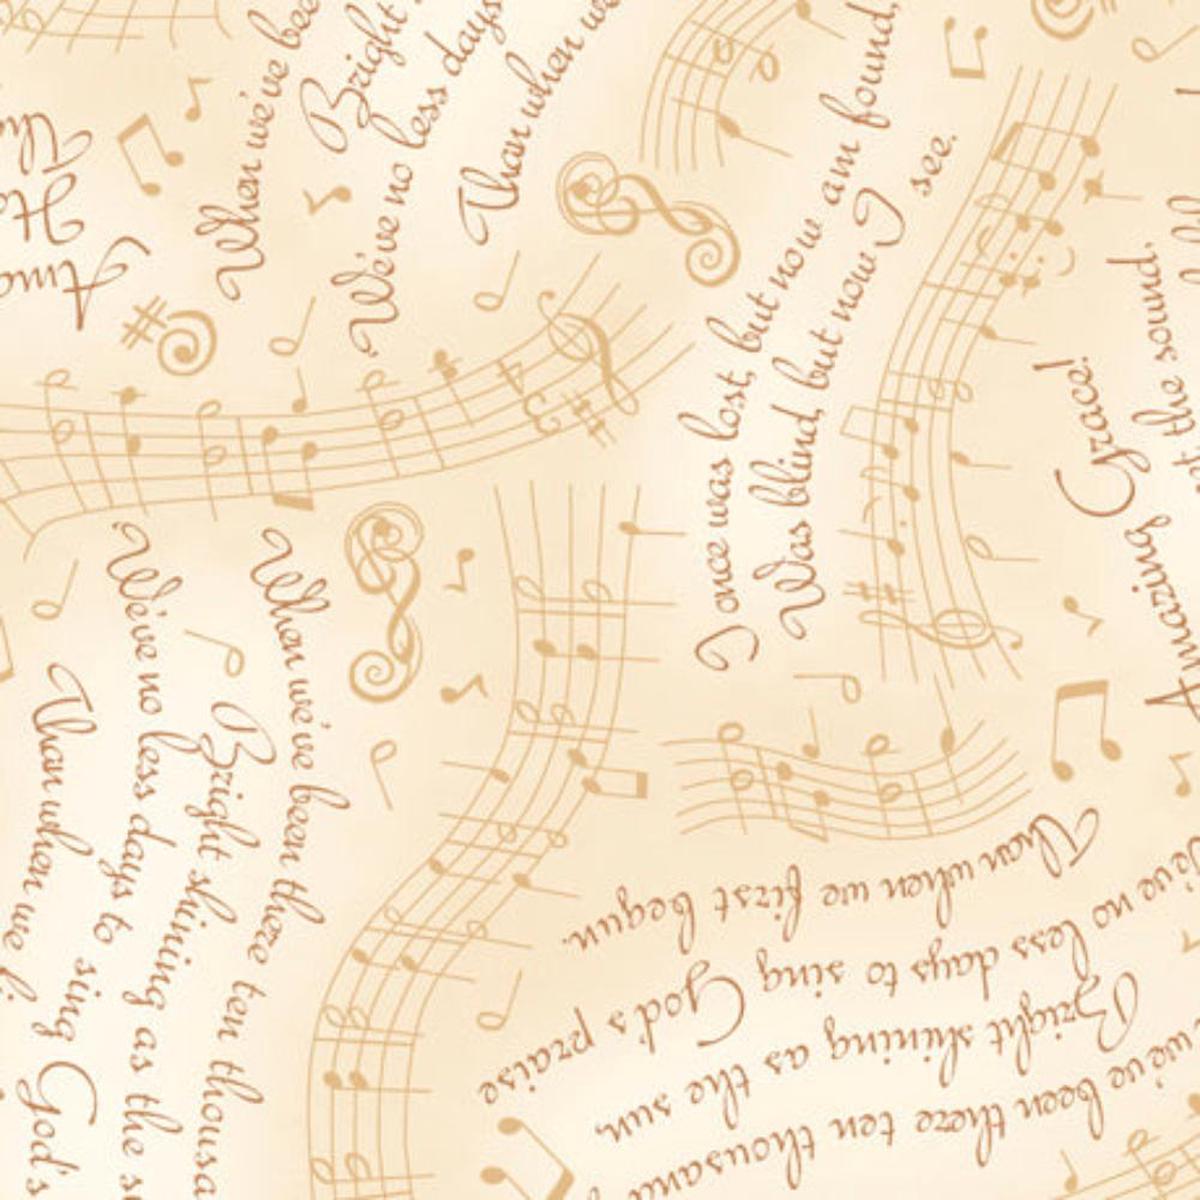 When we've bee
Bright
We've no less days
Than when we
I once was lost, but now am found,
Was blind, but now I
see.
Amazing Grace!
the sound,
When we've been there ten thousa
Bright shining as the s
We've no less days to sing God's
Than when we
we've been there ten thousand
Bright shining as the sun,
We've no less days to sing God's praise
Than when we first begun.